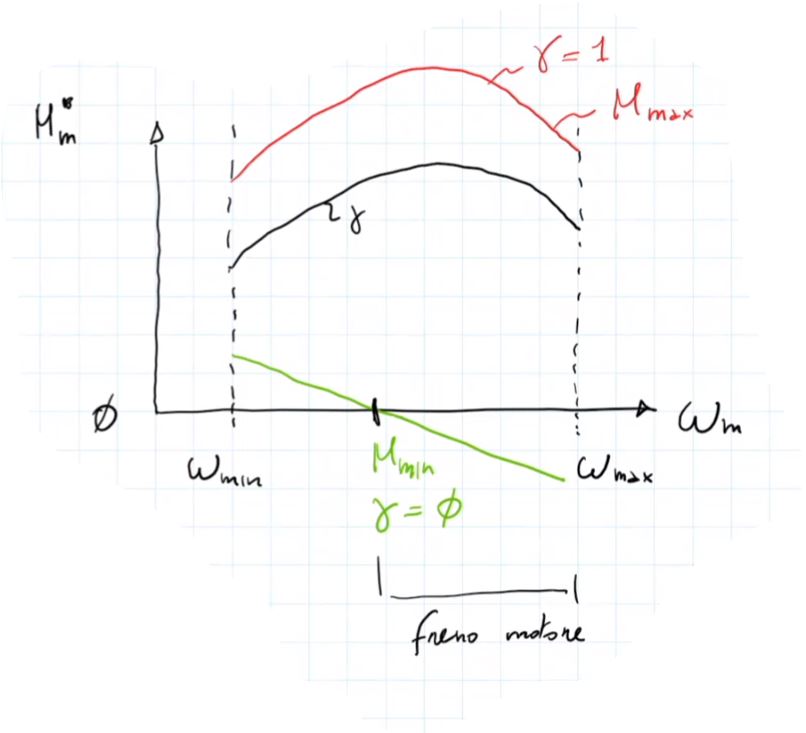 γ = 1
M max
M*m
γ
ϕ
ωm
ω min
M min
ω max
γ = ϕ
freno motore